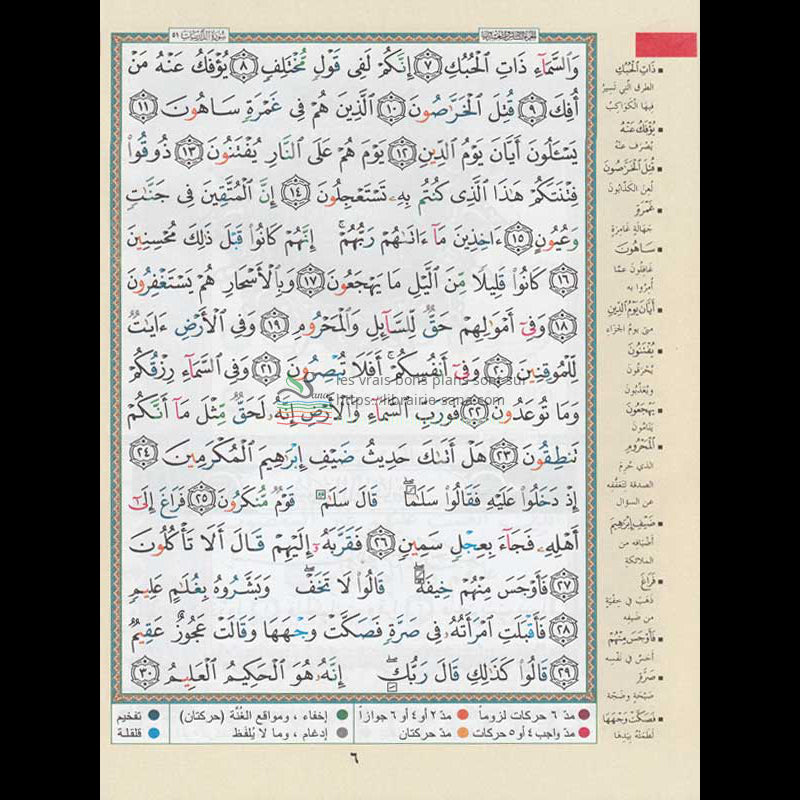 سورة الذاريات ٥١
وَالسَّمَآءِ ذَاتِ الْحُبُكِ ٧ إِنَّكُمْ لَفِى قَوْلٍ مُّخْتَلِفٍ ٨ يُؤْفَكُ عَنْهُ مَنْ
أُفِكَ ٩ قُتِلَ الْخَرَّٰصُونَ ١٠ الَّذِينَ هُمْ فِى غَمْرَةٍ سَاهُونَ ١١
يَسْـَٔلُونَ أَيَّانَ يَوْمُ الدِّينِ ١٢ يَوْمَ هُمْ عَلَى النَّارِ يُفْتَنُونَ ١٣ ذُوقُوا۟
فِتْنَتَكُمْ هَٰذَا الَّذِى كُنتُم بِهِۦ تَسْتَعْجِلُونَ ١٤ إِنَّ الْمُتَّقِينَ فِى جَنَّٰتٍ
وَعُيُونٍ ١٥ ءَاخِذِينَ مَآ ءَاتَىٰهُمْ رَبُّهُمْ ۚ إِنَّهُمْ كَانُوا۟ قَبْلَ ذَٰلِكَ مُحْسِنِينَ
١٦ كَانُوا۟ قَلِيلًا مِّنَ الَّيْلِ مَا يَهْجَعُونَ ١٧ وَبِالْأَسْحَارِ هُمْ يَسْتَغْفِرُونَ
١٨ وَفِىٓ أَمْوَٰلِهِمْ حَقٌّ لِّلسَّآئِلِ وَالْمَحْرُومِ ١٩ وَفِى الْأَرْضِ ءَايَٰتٌ
لِّلْمُوقِنِينَ ٢٠ وَفِىٓ أَنفُسِكُمْ ۚ أَفَلَا تُبْصِرُونَ ٢١ وَفِى السَّمَآءِ رِزْقُكُمْ
وَمَا تُوعَدُونَ ٢٢ فَوَرَبِّ السَّمَآءِ وَالْأَرْضِ إِنَّهُۥ لَحَقٌّ مِّثْلَ مَآ أَنَّكُمْ
تَنطِقُونَ ٢٣ هَلْ أَتَىٰكَ حَدِيثُ ضَيْفِ إِبْرَٰهِيمَ الْمُكْرَمِينَ ٢٤
إِذْ دَخَلُوا۟ عَلَيْهِ فَقَالُوا۟ سَلَٰمًا ۖ قَالَ سَلَٰمٌ قَوْمٌ مُّنكَرُونَ ٢٥ فَرَاغَ إِلَىٰٓ
أَهْلِهِۦ فَجَآءَ بِعِجْلٍ سَمِينٍ ٢٦ فَقَرَّبَهُۥٓ إِلَيْهِمْ قَالَ أَلَا تَأْكُلُونَ
٢٧ فَأَوْجَسَ مِنْهُمْ خِيفَةً ۖ قَالُوا۟ لَا تَخَفْ ۖ وَبَشَّرُوهُ بِغُلَٰمٍ عَلِيمٍ
٢٨ فَأَقْبَلَتِ امْرَأَتُهُۥ فِى صَرَّةٍ فَصَكَّتْ وَجْهَهَا وَقَالَتْ عَجُوزٌ عَقِيمٌ
٢٩ قَالُوا۟ كَذَٰلِكِ قَالَ رَبُّكِ ۖ إِنَّهُۥ هُوَ الْحَكِيمُ الْعَلِيمُ ٣٠
les vrais bons plans sont sur
https://librairie-sana.com
ذَاتِ الْحُبُكِ
الطرق الّتي تَسِيرُ
فِيهَا الكَواكِبُ
يُؤْفَكُ عَنْهُ
يُصْرَف عنْهُ
قُتِلَ الْخَرَّٰصُونَ
لُعِنَ الكذّابُونَ
غَمْرَةٍ
جَهَالةٍ غَامِرَةٍ
سَاهُونَ
غَافِلُونَ عمَّا
أُمِرُوا به
أَيَّانَ يَوْمُ الدِّينِ
متى يومُ الجَزاءِ
يُفْتَنُونَ
يُحْرَقُونَ
ويُعذَّبُونَ
يَهْجَعُونَ
يَنَامُونَ
الْمَحْرُومِ
الذي حُرِمَ
الصدقة لتَعَفُّفِه
عن السؤال
ضَيْفِ إِبْرَٰهِيمَ
أضْيَافه من
الملائكةِ
فَرَاغَ
ذَهَبَ في خِفْيَةٍ
من ضيفه
فَأَوْجَسَ مِنْهُمْ
أحَسَّ في نَفْسِه
صَرَّةٍ
صَيْحَةٍ وضَجّة
فَصَكَّتْ وَجْهَهَا
لَطَمَتْهُ بِيَدِهَا
مدّ ٦ حركات لزوماً
مدّ ٢ أو ٤ أو ٦ جوازاً
إخفاء ، ومواقع الغُنَّة (حركتان)
تفخيم
مدّ واجب ٤ أو ٥ حركات
مدّ حركتان
إدغام ، وما لا يُلفَظ
قلقلة
٦